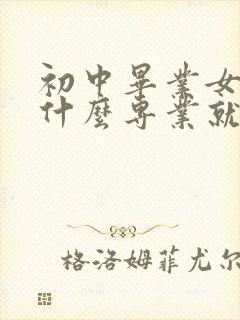 初中畢業女
什麼專業就
格洛姆菲尤尔